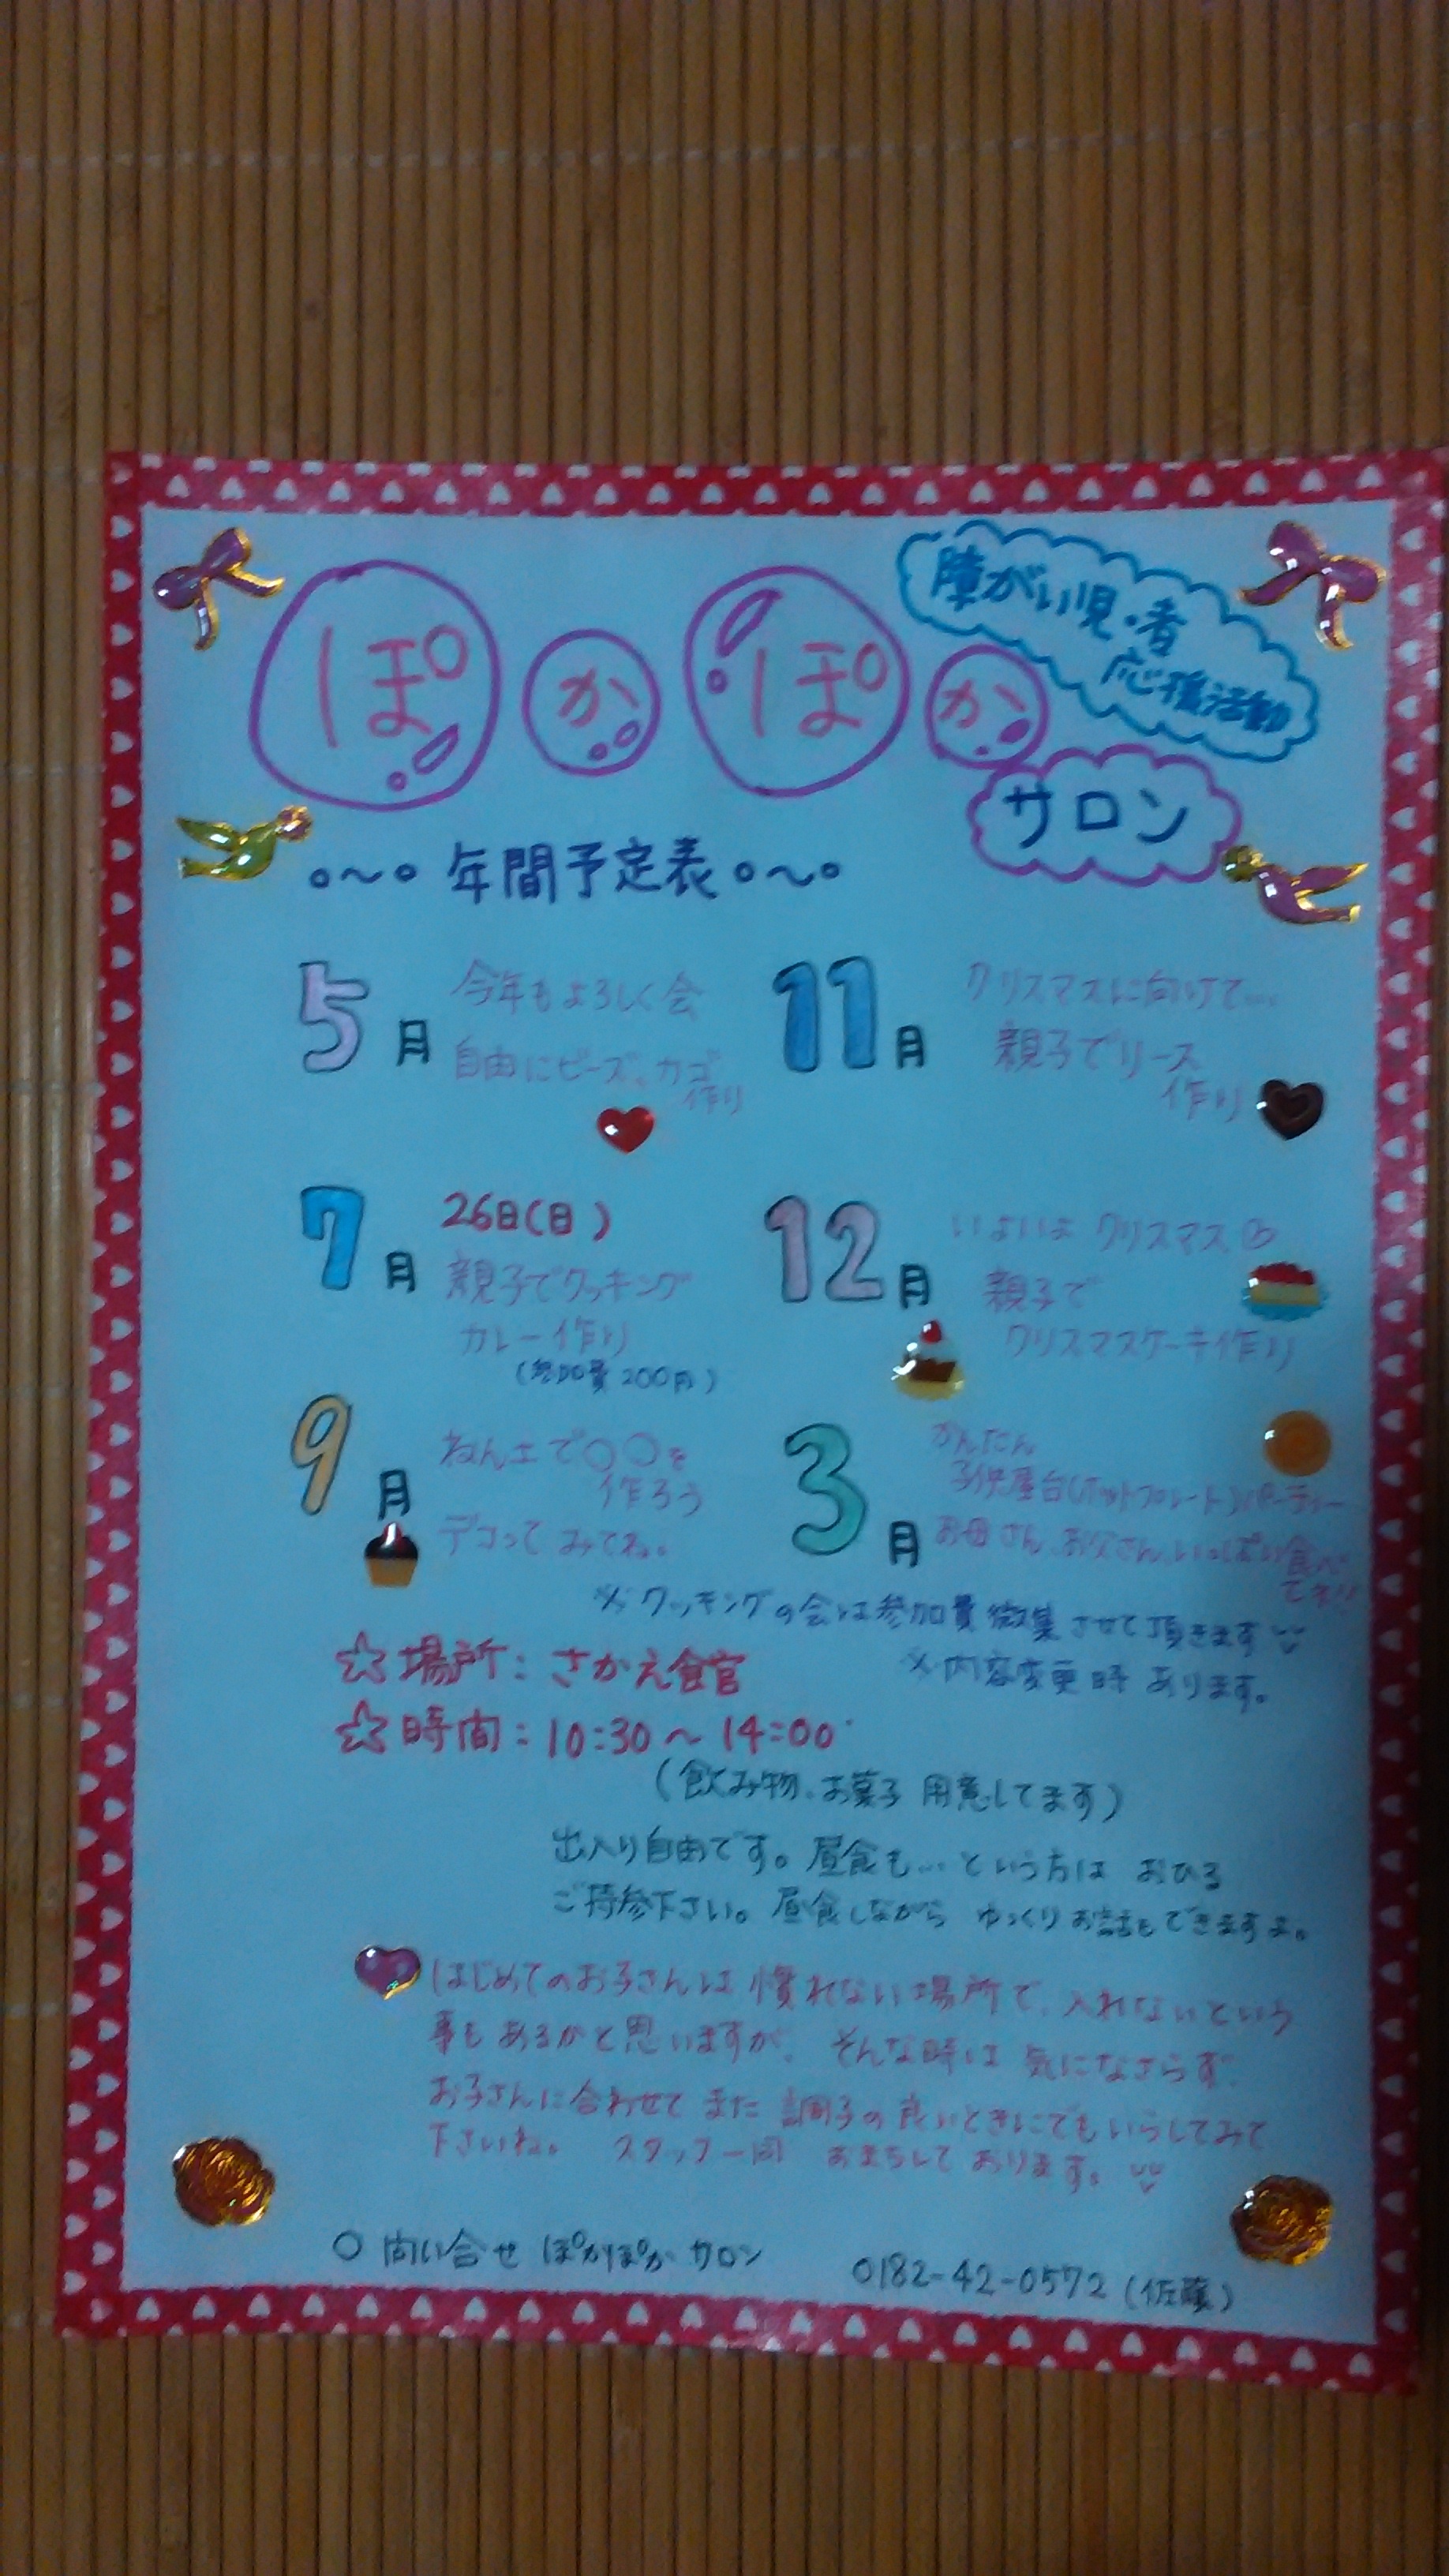 ぽかぽか
障がい児・者
応援活動
サロン
。~。年間予定表。~。
5月 今年もよろしく会
自由にビーズ、カゴ
作り
7月 26日(日)
親子でクッキング
カレー作り
(参加費200円)
9月 ねん土で○○を
作ろう
デコってみてね。
11月 クリスマスに向けて…
親子でリース
作り
12月 いよいよクリスマス
親子で
クリスマスケーキ作り
3月 かんたん
子供屋台(ホットプレート)パーティー
お母さん、お父さん、いっぱい食べ
てネ!!
※クッキングの会は参加費徴集させて頂きます
※内容変更時あります。
☆場所:さかえ食官
☆時間:10:30~14:00
(飲み物、お菓子 用意してます)
出入り自由です。昼食も…という方は おひる
ご持参下さい。昼食しながら ゆっくりお話もできますよ。
はじめてのお子さんは 慣れない場所で、入れないという
事もあるかと思いますが、そんな時は 気になさらず、
お子さんに合わせて また 調子の良いときにでもいらしてみて
下さいね。 スタッフ一同 おまちして おります。
○ 問い合せ ぽかぽか サロン 0182-42-0572 (佐藤)